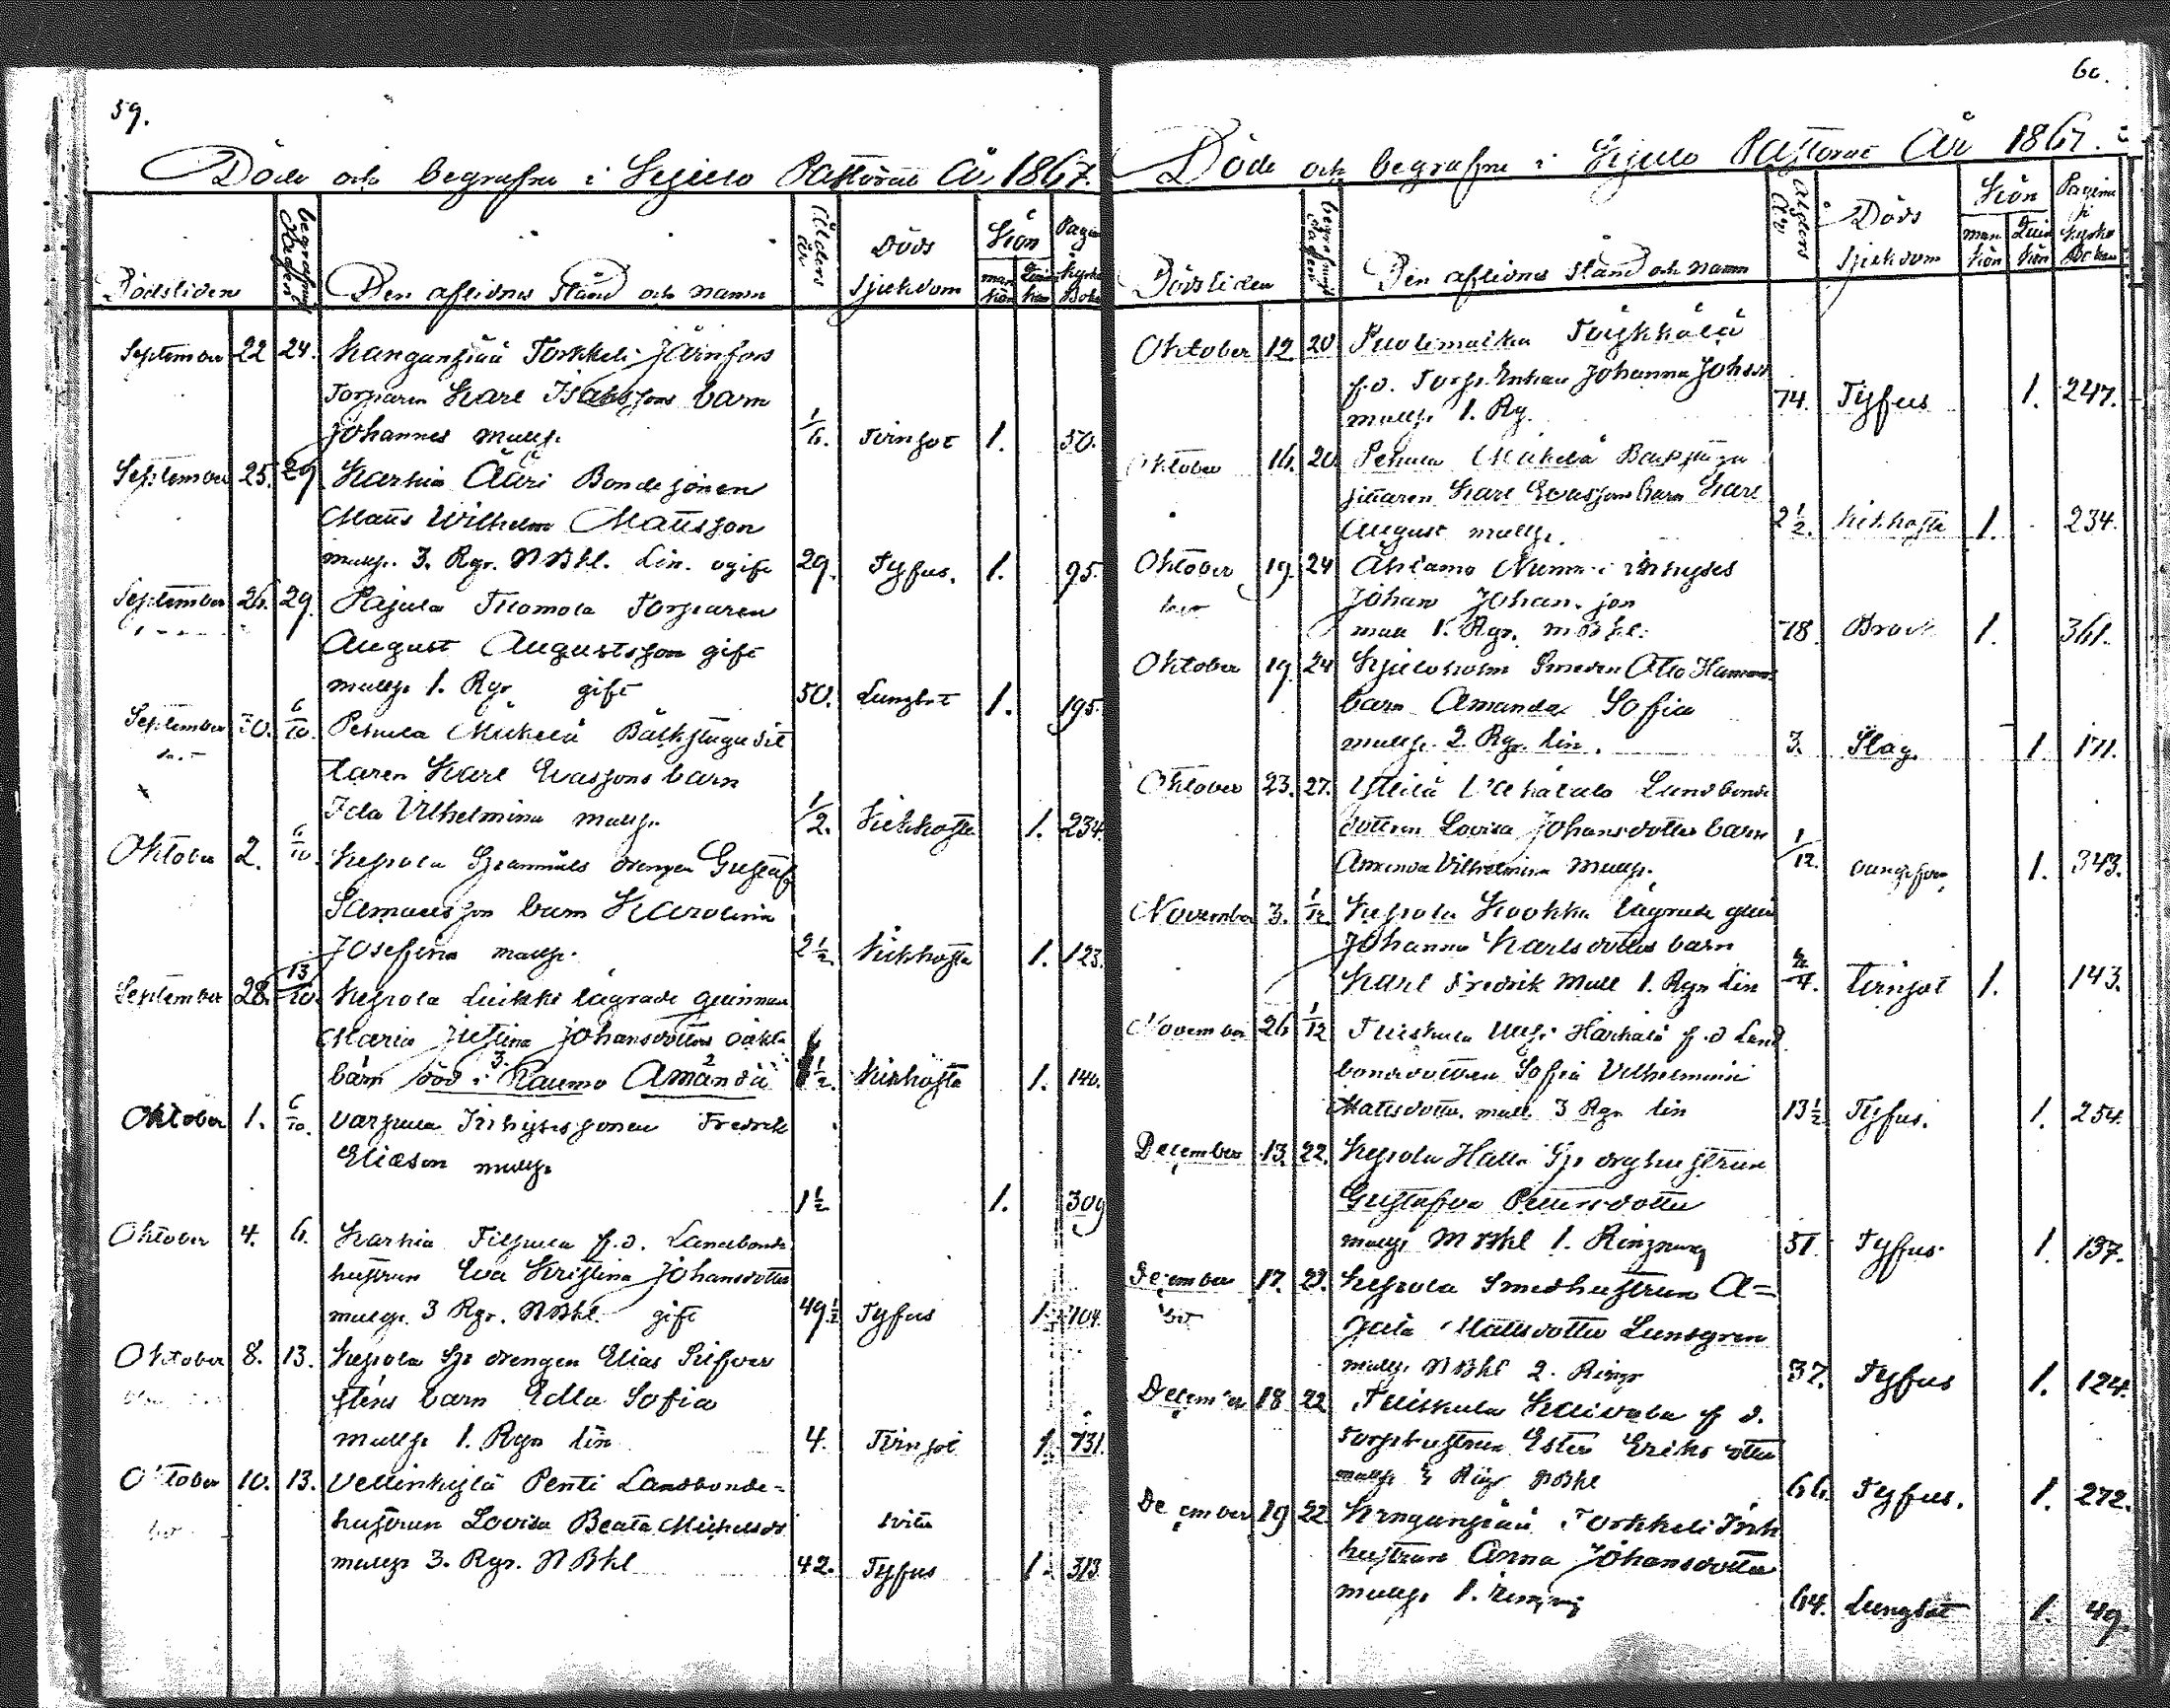 59.
Döde och begrafne i Kjulo Pastorat År 1867.
Dödstiden
begrafnings dagen
Den aflidnes Stånd och namn
Ålders år
Döds sjukdom
Kön
man kön
Quin kön
Pagina Kyrko Boken
September 22 24. Kanganpää Torkkeli Järnfors
Torparen Karl Isakssons barn
Johannes mullp. 1/6. Tvinsot 1. 50.
September 25. 29 Karhia Ääri Bondesonen
Matts Wilhelm Mattsson
mullp. 3. Rgr. NBkl. Lin. ogift 29. Tyfus. 1. 95.
September 26. 29. Pajula Tuomola Torparen
August Augustsson gift
mullp 1. Rgr gift 50. Lungsot 1. 195.
September 30. 6/10. Pehula Mickelä Backstugusit
taren Karl Evassons barn
Ida Vilhelmina mullp. 1/2. Kikhosta 1. 234.
Oktober 2. 6/10. Kepola drengen Gustaf
Samuelsson barn Karolina
Josefina mullp. 2 1/2. Kikhosta 1. 123.
September 28. 13/10. Kepola Luikki lägrade quinnan
Maria Justina Johansdotters oäkta
barn död i Raumo Amanda 1/2. Kikhosta 1. 140.
Oktober 1. 6/10. Varpula Inhysessonen Fredrik
Eliason mullp.
1 1/2 1. 309
Oktober 4. 6. Karhia Filpula f.d. Landbonde
hustrun Eva Kristina Johansdotter
mullp. 3 Rgr. NBkl. gift 49 1/2 Tyfus 1. 104.
Oktober 8. 13. Kepola Sp drengen Elias Silfver
stens barn Edla Sofia
mullp 1. Rgr lin 4. Tvinsot 1. 131.
Oktober 10. 13. Vellinkylä Penti Landbonde=
hustrun Lovisa Beata Michelsdr
mullp 3. Rgr. NBkl 42. Tyfus 1. 313.
60.
Döde och begrafne i Kjulo Pastorat År 1867.
Dödstiden
begrafnings dagen
Den aflidnes Stånd och namn
Ålders År
Döds sjukdom
Kön
man kön
Quin kön
Pagina i Kyrko Boken
Oktober 12 20 Puolimatka
f.d. Torp. Enkan Johanna Johsdr
mullp. 1. Rg. 74. Tyfus 1. 247.
Oktober 16. 20 Pehula Mäkelä Backstugu
sittaren Karl Evassons barn Karl
August mullp. 2 1/2. kikhosta 1. 234.
Oktober 19. 24 Ählamo Nummi inhyses
Johan Johansson
mull 1. Rgr. mBkl. 78. Brock 1. 361.
Oktober 19 24 Kjuloholm Smeden Otto
barn Amanda Sofia
mullp. 2 Rgr. lin. 3. Slag. 1 171.
Oktober 23. 27. Landbonde
dottren Lovisa Johansdotters barn
Amanda Vilhelmina mullp. 1/12. 1. 343.
November 3. 1/12 Kepola Kookka lägrade quin
Johanna Karlsdotters barn
Karl Fredrik mull 1. Rgr lin tvinsot 1. 143.
November 26 1/12 Tuiskula Härkälä f.d Land
bondedottren Sofia Vilhelmina
Mattsdotter. mull. 3 Rgr lin 13 1/2 Tyfus. 1. 254.
December 13. 22. Kepola Halla Sp drghustrun
Gustafva Pettersdotter
mullp MBkl 1. Ringning 51. Tyfus. 1. 137.
December 17. 22. Kepola Smedhustrun A=
gata Mattsdotter Lundgren
mullp. NBkl 2. Ringr 37. Tyfus 1. 124.
December 18 22 Tuiskula f.d.
Torphustrun Ester Eriksdotter
mullp Ringr NBkl 66. Tyfus. 1. 272.
December 19 22 Kanganpää Torkkeli Inh
hustrun Anna Johansdotter
mullp. 1. Ringning 64. Lungsot 1. 49.